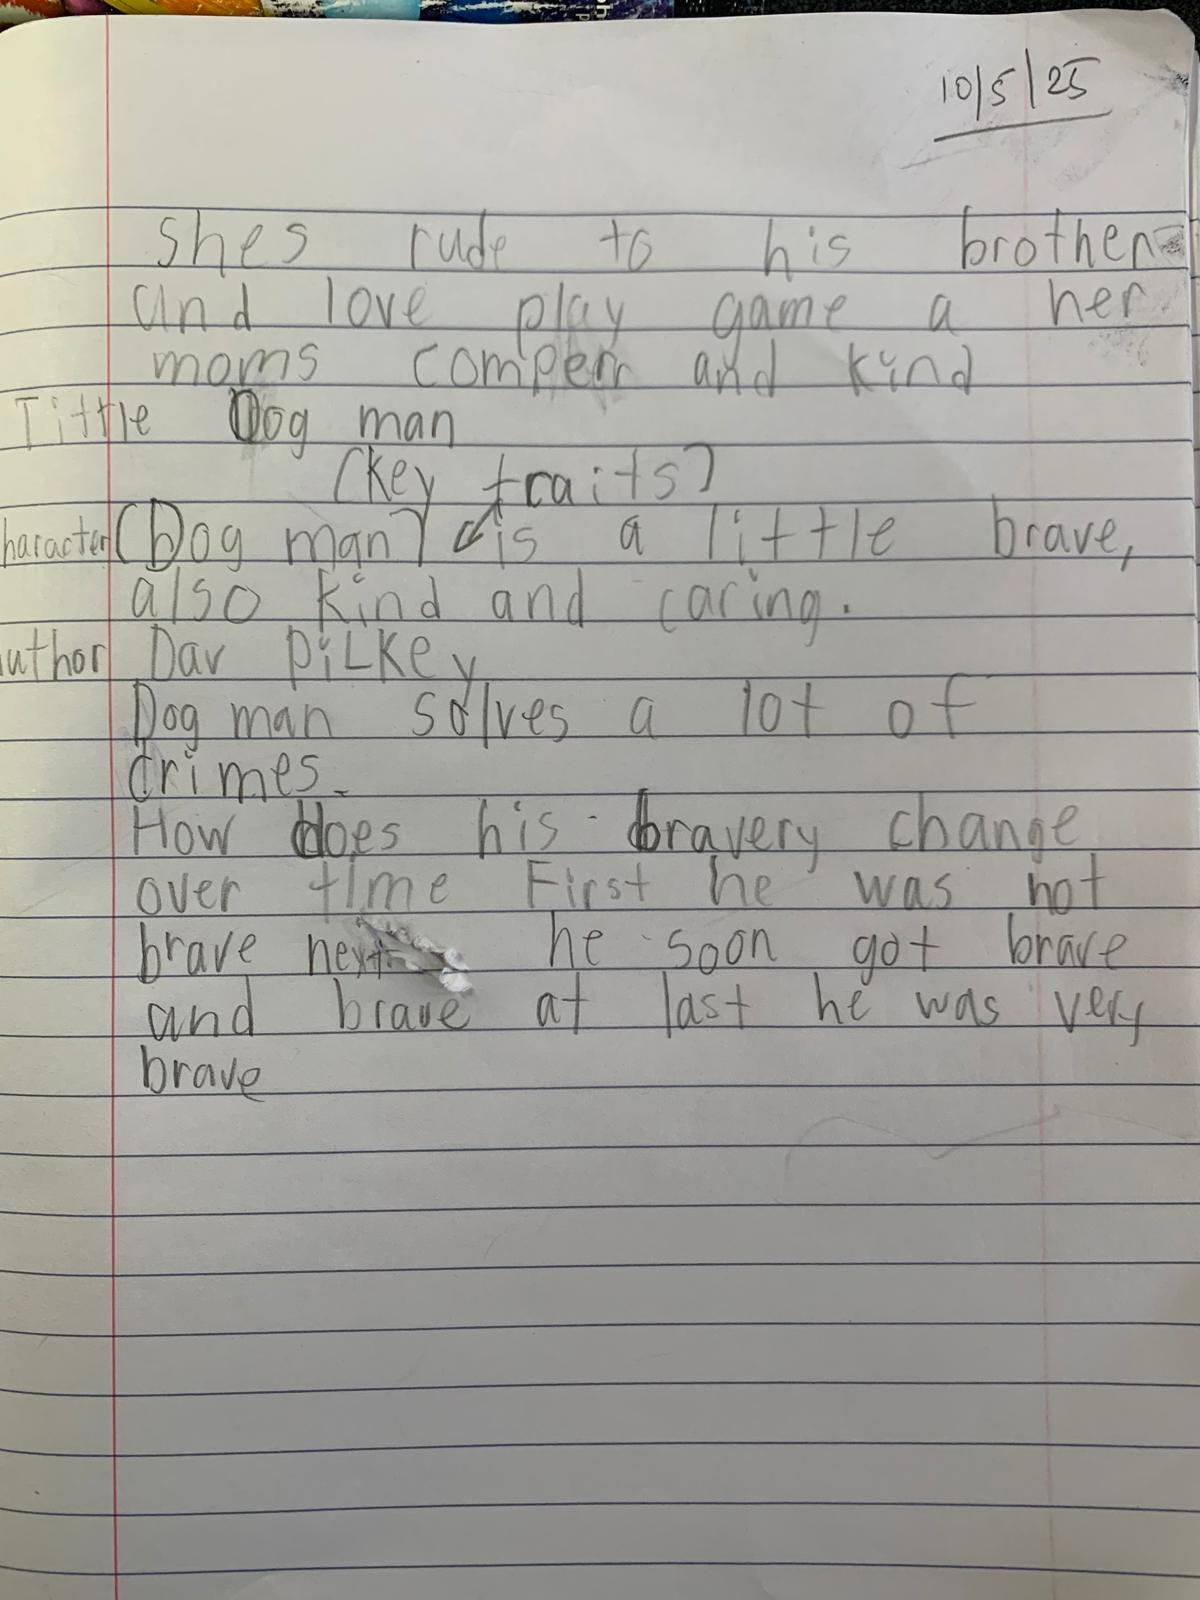 10/5/25
shes rude to his brother
and love play game a her
moms comperr and kind
Tittle Dog man
(Key traits)
haracter (Dog man) is a little brave,
also kind and caring.
uthor Dav PiLKey
Dog man solves a lot of
crimes.
How does his bravery change
over time First he was not
brave next he soon got brave
and brave at last he was very
brave